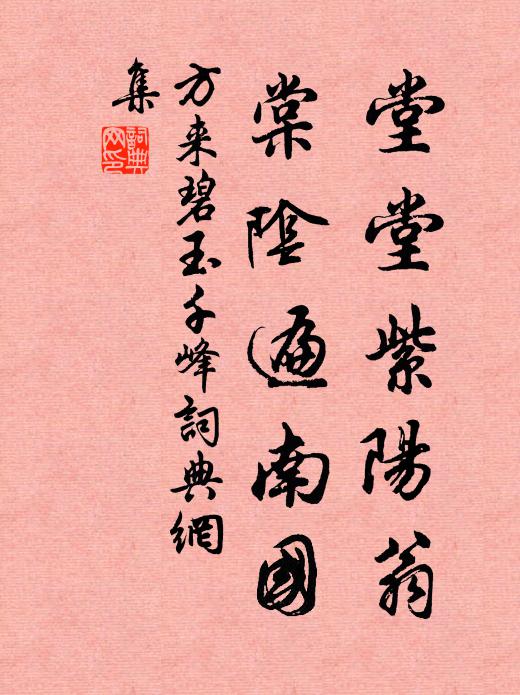 堂堂紫陽翁
棠陰遍南國
方来碧玉千峰詞典網
集
詞典网印